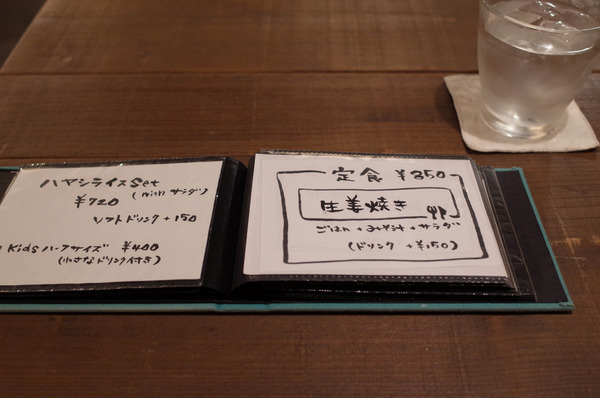 ハヤシライスSet
(with サラダ)
¥720
ソフトドリンク +150
Kids ハーフサイズ ¥400
(小さなドリンク付き)
定食 ¥850
生姜焼き
ごはん + みそ汁 + サラダ
(ドリンク +¥150)